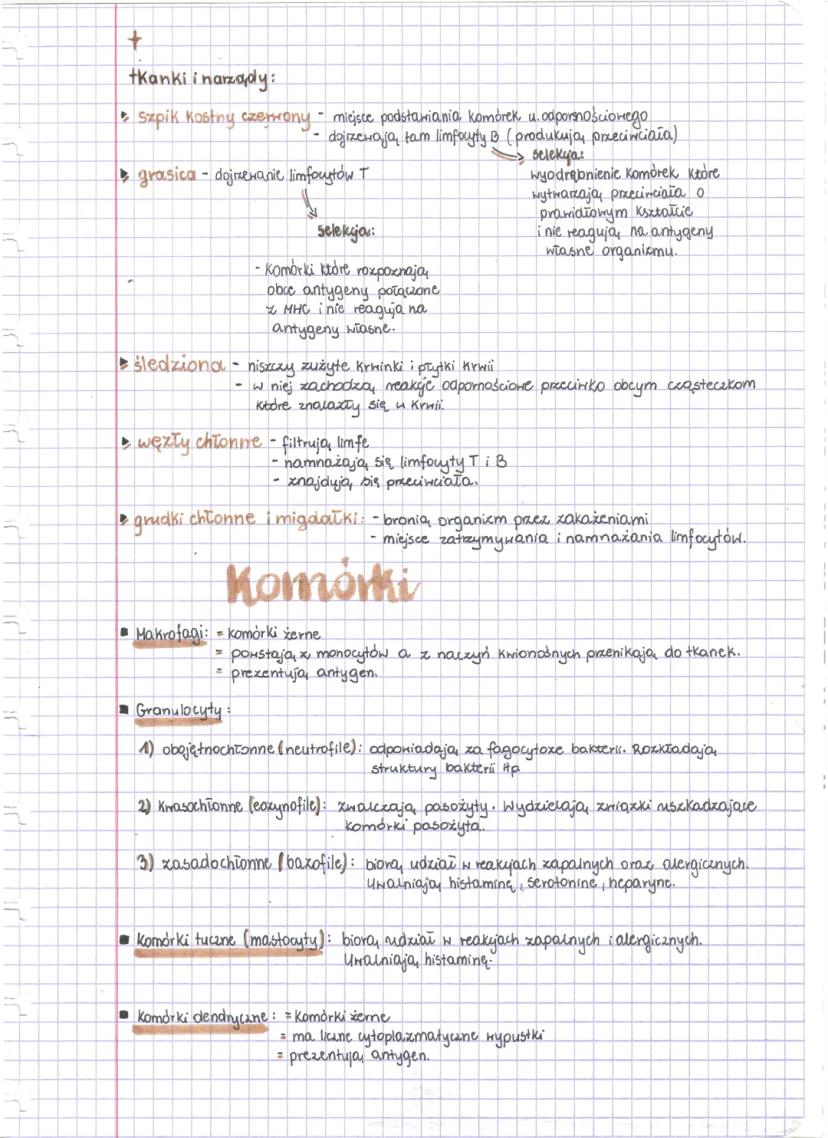 +
tkanki i narządy:
▸ szpik kostny czerwony - miejsce podstawiania komórek u. odpornościowego
- dojrzewają tam limfocyty B (produkują przeciwciała)
selekcja:
wyodrębnienie komórek które
wytwarzają przeciwciała o
prawidłowym kształcie
i nie reagują na antygeny
własne organizmu.
▸ grasica - dojrzewanie limfocytów T
selekcja:
- komórki które rozpoznają
obce antygeny połączone
z MHC i nie reagują na
antygeny własne.
▸ śledziona - niszczy zużyte krwinki i płytki krwii
- w niej zachodzą reakcje odpornościowe przeciwko obcym cząsteczkom
które znalazły się w krwii.
▸ węzły chłonne - filtrują limfe
- namnażają się limfocyty T i B
- znajdują się przeciwciała.
▸ grudki chłonne i migdałki: - bronią organizm przez zakażeniami
- miejsce zatrzymywania i namnażania limfocytów.
Komórki
▪ Makrofagi: = komórki żerne
= powstają z monocytów a z naczyń krwionośnych przenikają do tkanek.
= prezentują antygen.
▪ Granulocyty:
1) obojętnochłonne (neutrofile): odpowiadają za fagocytoze bakterii. Rozkładają
struktury bakterii itp
2) kwasochłonne (eozynofile): zwalczają pasożyty. Wydzielają związki uszkadzające
komórki pasożyta.
3) zasadochłonne (bazofile): biorą udział w reakcjach zapalnych oraz alergicznych.
Uwalniają histaminę, serotonine, heparyne.
▪ Komórki tuczne (mastocyty): biorą udział w reakcjach zapalnych i alergicznych.
Uwalniają histaminę.
▪ Komórki dendryczne: = komórki żerne
= ma liczne cytoplazmatyczne wypustki
= prezentują antygen.